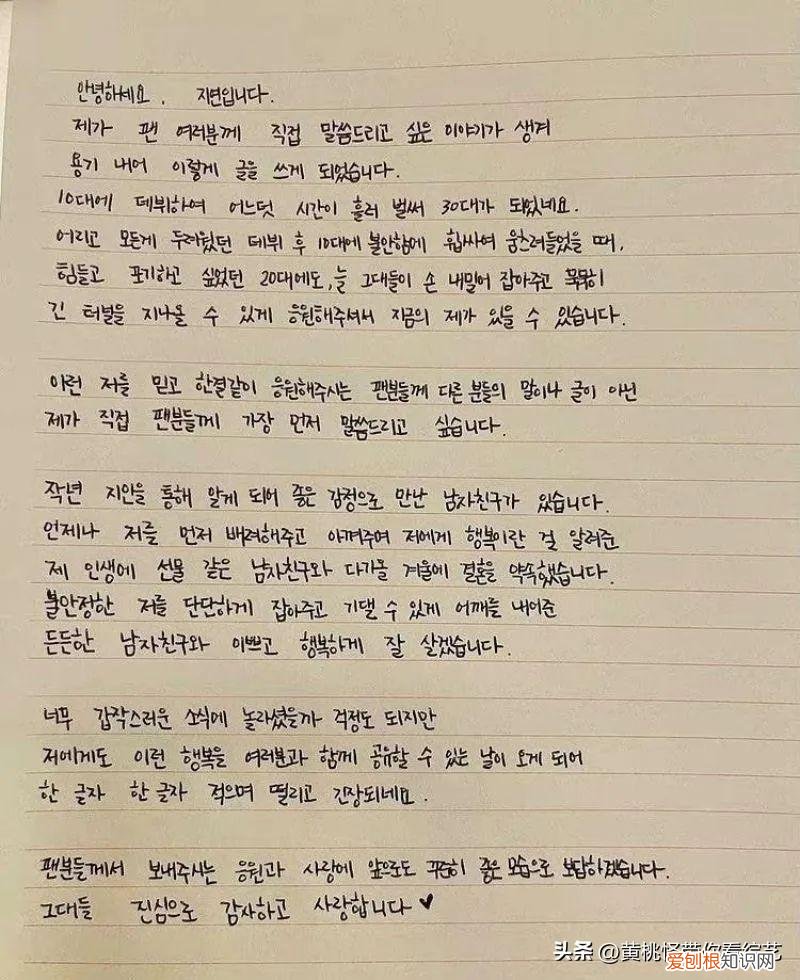 안녕하세요. 지연입니다.
제가 팬 여러분께 직접 말씀드리고 싶은 이야기가 생겨
용기 내어 이렇게 글을 쓰게 되었습니다.
10대에 데뷔하여 어느덧 시간이 흘러 벌써 30대가 되었네요.
어리고 모든게 두려웠던 데뷔 후 10대에 불안함에 휩싸여 움츠려들었을 때,
힘들고 포기하고 싶었던 20대에도, 늘 그대들이 손 내밀어 잡아주고 묵묵히
긴 터널을 지나올 수 있게 응원해주셔서 지금의 제가 있을 수 있습니다.
이런 저를 믿고 한결같이 응원해주시는 팬분들께 다른 분들의 말이나 글이 아닌
제가 직접 팬분들께 가장 먼저 말씀드리고 싶습니다.
작년 지인을 통해 알게 되어 좋은 감정으로 만난 남자친구가 있습니다.
언제나 저를 먼저 배려해주고 아껴주며 저에게 행복이란 걸 알려준
제 인생에 선물 같은 남자친구와 다가올 겨울에 결혼을 약속했습니다.
불안정한 저를 단단하게 잡아주고 기댈 수 있게 어깨를 내어준
든든한 남자친구와 이쁘고 행복하게 잘 살겠습니다.
너무 갑작스러운 소식에 놀라셨을까 걱정도 되지만
저에게도 이런 행복을 여러분과 함께 공유할 수 있는 날이 오게 되어
한 글자 한 글자 적으며 떨리고 긴장되네요.
팬분들께서 보내주시는 응원과 사랑에 앞으로도 꾸준히 좋은 모습으로 보답하겠습니다.
그대들 진심으로 감사하고 사랑합니다 ♥
头条 @黄桃怪带你看综艺
爱刨根知识网